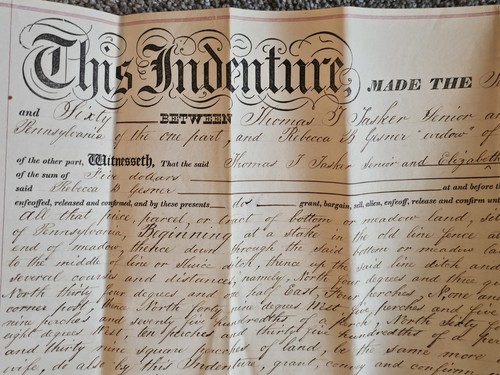 This Indenture, MADE THE
and Sixty BETWEEN Thomas T Tasker Senior an
Pennsylvania of the one part, and Rebecca D Gesner widow of
of the other part, Witnesseth, That the said Thomas T Tasker Senior and Elizabeth
of the sum of Five dollars
said Rebecca D Gesner at and before t
enfeoffed, released and confirmed, and by these presents do grant, bargain, sell, alien, enfeoff, release and confirm unt
All that piece, parcel, or tract of bottom or meadow land, se
of Pennsylvania, Beginning at a stake in the old line fence at
end of meadow, thence down through the said bottom or meadow la
to the middle of line or sluice ditch, thence up the said line ditch and
several courses and distances, namely, North four degrees and three qu
North thirty four degrees and one half East, Four perches, None an
corner post, thence North forty nine degrees West five perches and five
nine perches and seventy five hundredths of a perch, North Sixty
eight degrees West, ten perches and thirty five hundredths of a pe
and thirty nine square perches of land, be the same more
wife, do also by this Indenture, grant, convey and confirm